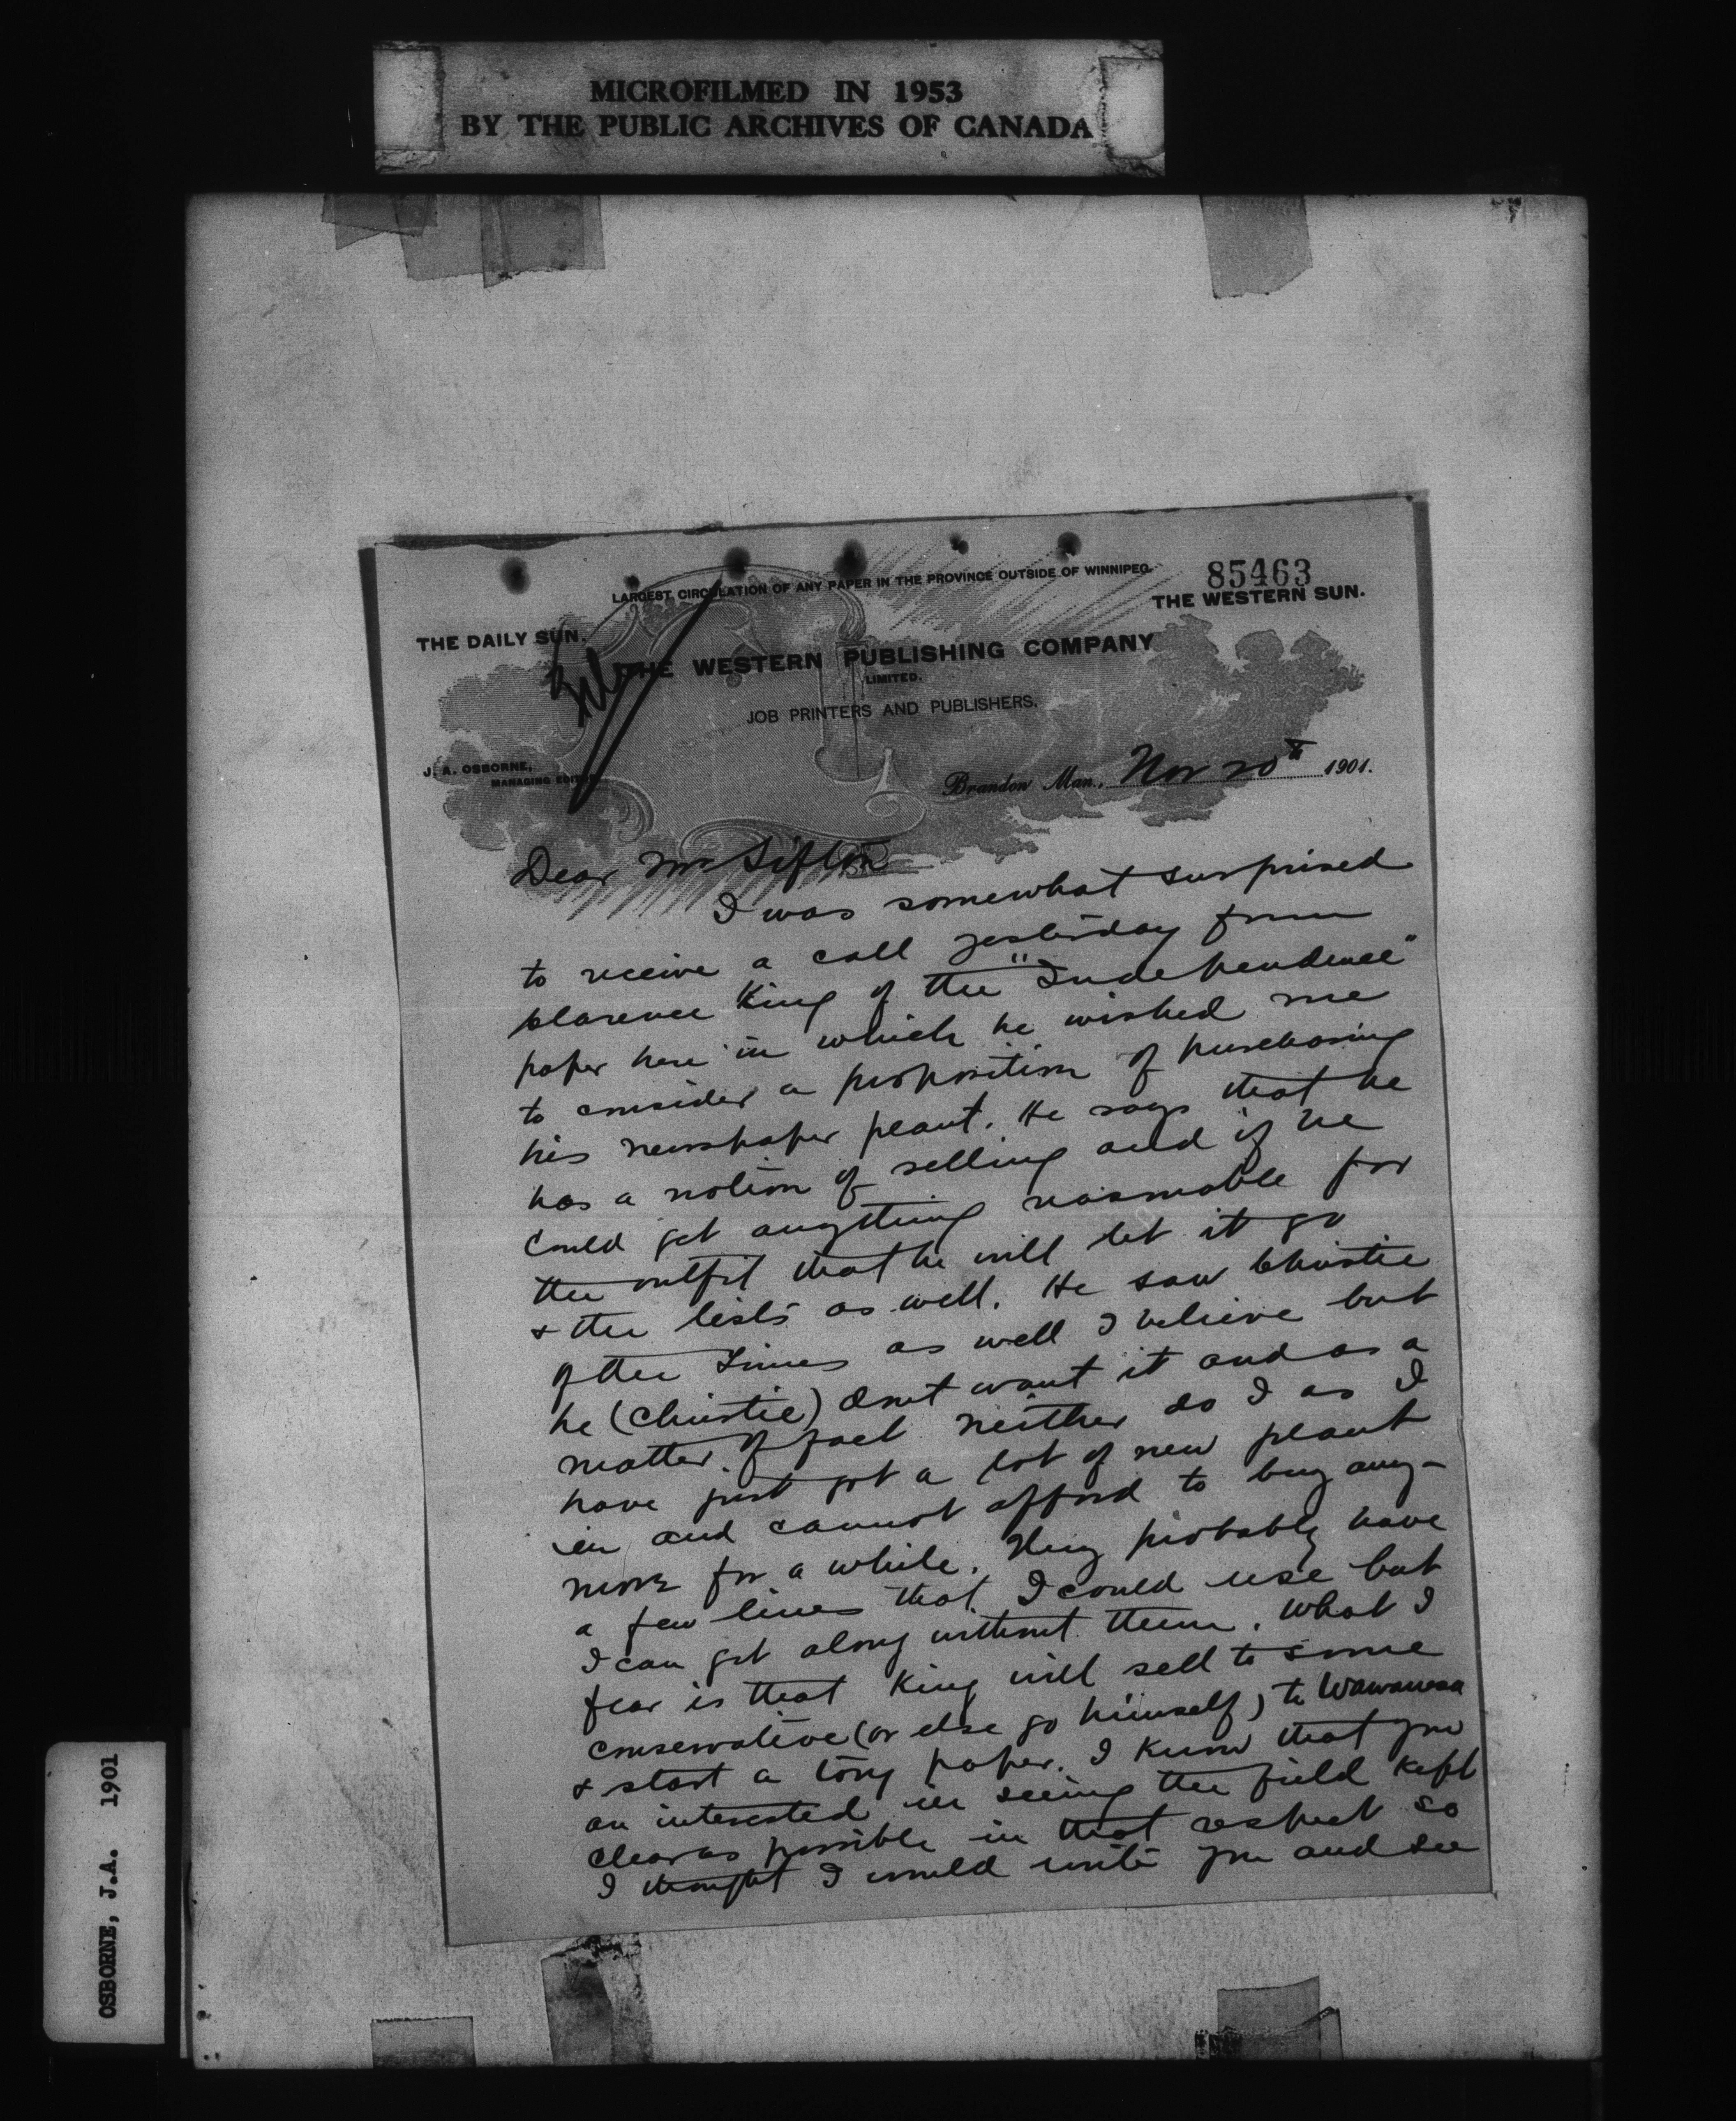 MICROFILMED IN 1953
BY THE PUBLIC ARCHIVES OF CANADA
85463
LARGEST CIRCULATION OF ANY PAPER IN THE PROVINCE OUTSIDE OF WINNIPEG.
THE WESTERN SUN.
THE DAILY SUN.
THE WESTERN PUBLISHING COMPANY
LIMITED.
JOB PRINTERS AND PUBLISHERS.
J. A. OSBORNE,
MANAGING EDITOR
Brandon Man., Nov 20th 1901.
File
Dear Mr Sifton
I was somewhat surprised
to receive a call yesterday from
Clarence King of the "Independence"
paper here in which he wished me
to consider a proposition of purchasing
his newspaper plant. He says that he
has a notion of selling and if he
could get anything reasonable for
the outfit that he will let it go
& the lists as well. He saw Christie
of the Times as well I believe but
he (Christie) dont want it and as a
matter of fact neither do I as I
have just got a lot of new plant
in and cannot afford to buy any-
more for a while. They probably have
a few lines that I could use but
I can get along without them. What I
fear is that King will sell to some
conservative (or else go himself) to Wawanesa
& start a tory paper. I know that you
are interested in seeing the field kept
clear as possible in that respect so
I thought I would write you and see
OSBORNE, J.A. 1901